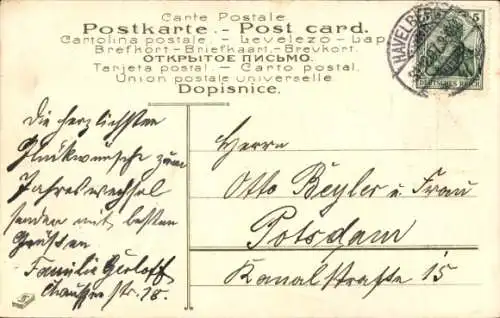 Carte Postale
Postkarte. - Post card.
Cartolina postale. - Levelezo - Lap
Brefkort - Briefkaart - Brevkort.
ОТКРЫТОЕ ПИСЬМО.
Tarjeta postal - Carto postal.
Union postale universelle
Dopisnice.
HAVELBERG
5
DEUTSCHES REICH
Die herzlichsten
Glückwünsche zum
Jahreswechsel
senden mit besten
Grüssen
Familie Gerloff
Str. 18.
Herrn
Otto Beyler u. Frau
Potsdam
Kanalstraße 15